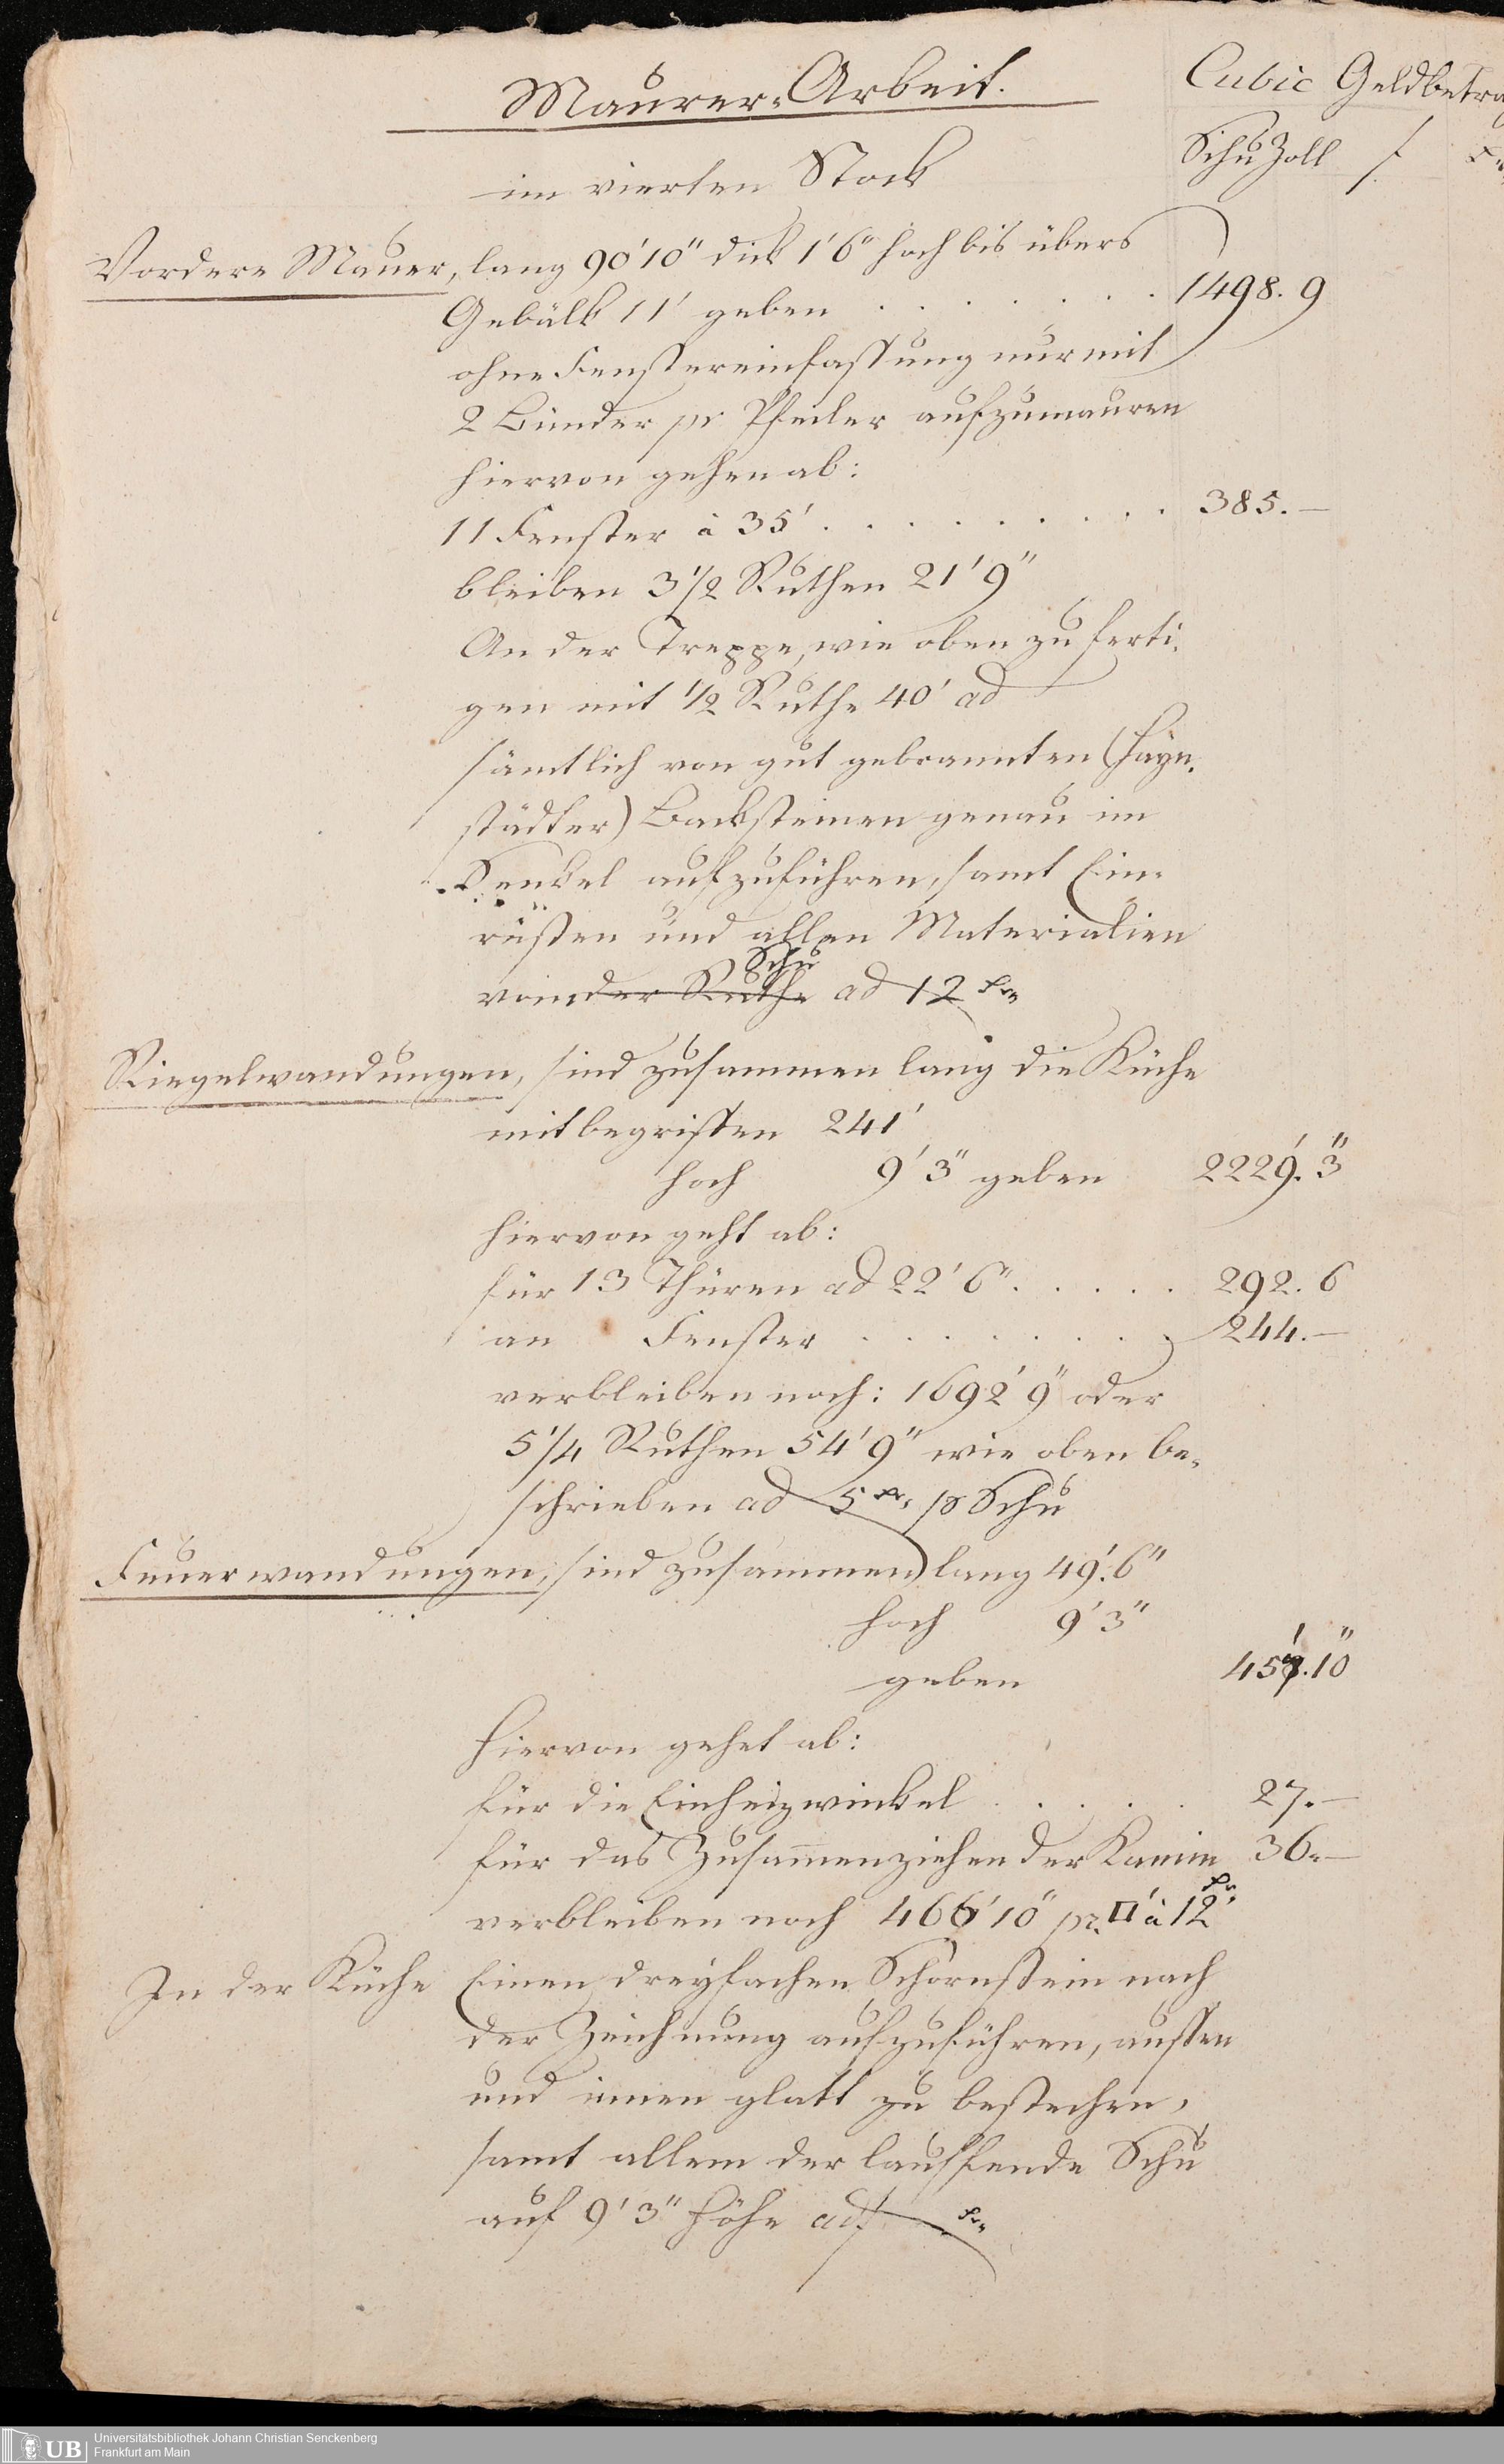 Maurer-Arbeit.
Cubic Geldbetra
im vierten Stock
Schu Zoll f
Vordere Mauer, lang 90' 10" dick 1' 6" hoch bis übers
Gebälk 11' geben . . . . . . 1498. 9
ohne Fenstereinfassung nur mit
2 Binder pr Pfeiler aufzumauren
hiervon gehen ab:
11 Fenster à 35' . . . . . . . . 385. —
bleiben 3 1/2 Ruthen 21' 9"
An der Treppe, wie oben zu ferti-
gen mit 1/2 Ruthe 40' ad
sämtlich von gut gebrannten (Hayn-
städter) Backsteinen genau im
Senkel aufzuführen, samt Ein-
rüsten und allen Materialien
Schu
von der Ruthe ad 12 xr
Riegelwandungen, sind zusammen lang die Küche
mitbegriffen 241'
hoch 9' 3" geben 2229.' 3"
hiervon geht ab:
für 13 Thüren ad 22' 6" . . . . . 292. 6
an Fenster . . . . . . . 244. —
verbleiben noch: 1692' 9" oder
5 1/4 Ruthen 54' 9" wie oben be-
schrieben ad 5 xr. pr Schu
Feuerwandungen, sind zusammen lang 49'. 6"
hoch 9' 3"
geben 457.' 10"
Hiervon gehet ab:
für die Einheizwinkel . . . . 27. —
für das Zusam̅enziehen der Kamin 36. —
verbleiben noch 466' 10" pr. □' à 12 xr.
In der Küche Einen dreyfachen Schornstein nach
der Zeichnung aufzuführen, aussen
und innen glatt zu bestechen,
samt allem der lauffende Schu
auf 9' 3" Höhe ad f xr
UB Universitätsbibliothek Johann Christian Senckenberg
Frankfurt am Main